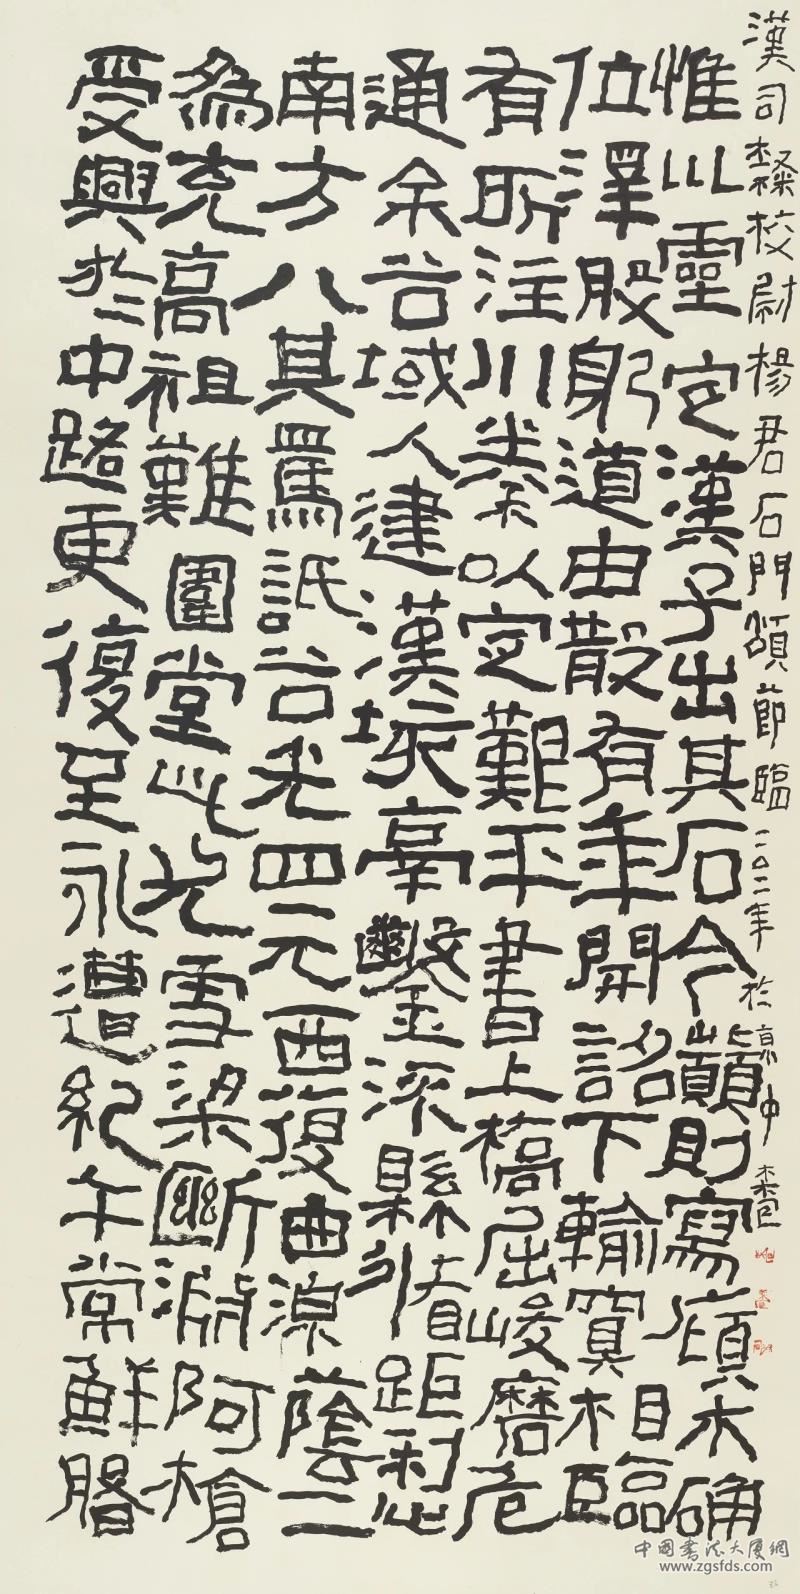 漢司隸校尉楊君石門頌節臨二〇二一年於京中
惟巛靈定漢子出其石今顛則寫木确
位澤股躬道由散有年開詔下輸相臨
有所注川以定艱平書上槁屈峻磨危
通余谷域人建漢鑿深縣距
南方八其谷光四元西復曲涼蔭二
為充高祖難圍堂此光雪梁斷阿槍
受興於中路更復至永遭紀午常鮮
中國書法大厦網
www.zgsfds.com